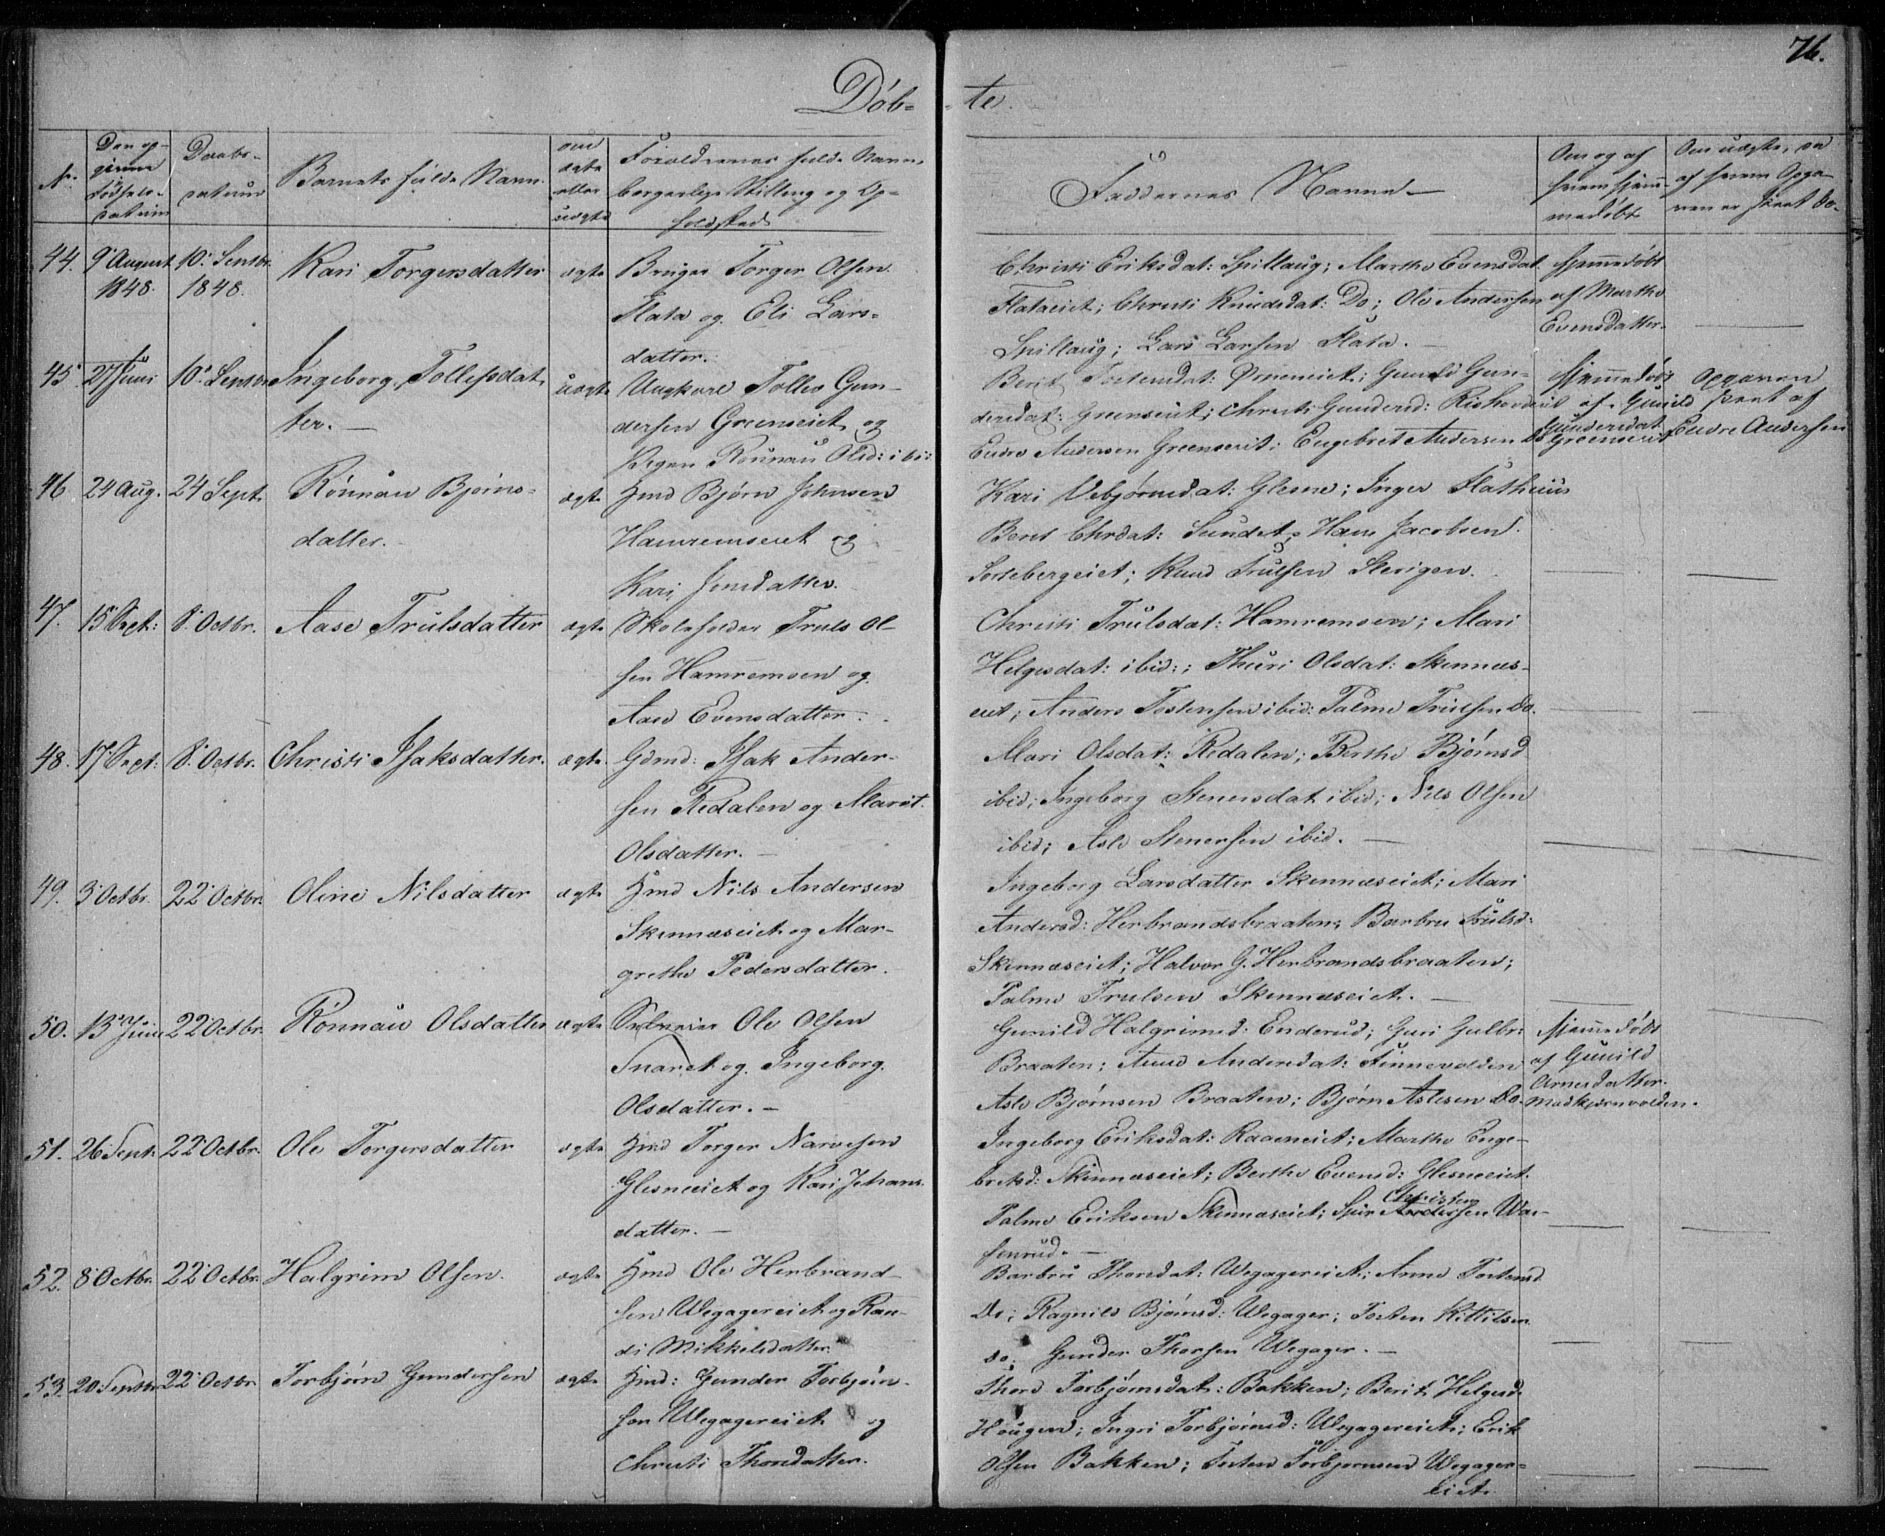 76.
Døb- te.
No. Den op- givne fødsels- datum Daabs- datum Barnets fulde Navn om ægte eller uægte Forældrenes fulde Navn, borgerlige Stilling og Op- holdsted. Faddernes Navne Om og af hvem hjem- medøbt Om uægte, da af hvem Opga- ven er skeet &c.
44. 9 August 1848. 10 Septbr. 1848. Kari Torgersdatter ægte Bruger Torger Olsen
Flata og Eli Lars-
datter.
Christi Eriksdat: Spillaug; Marthe Evensdat.
Flataeiet; Christi Knudsdat: Do; Ole Andersen
Spillaug; Lars Larsen Flata.
hjemmedøbt
af Marthe
Evensdatter.
45 27 Juni 10 Septbr Ingeborg Tollefsdat-
ter. uægte Ungkarl Tollev Gun-
dersen Greeneeiet og
Pigen Rønnau Olsd: ibi:
Berit Tostensdat: Ørneneiet; Gunild Gun-
dersdat: Greeneeiet; Christi Gundersd:
Endre Andersen Greeneeiet; Engebret Andersen Do
hjemmedøbt
af Gunild
Gundersdat.
Greeneeiet
Opgaven
skeet af
Endre Andersen
46 24 Aug. 24 Sept. Rønnau Bjørns-
datter. ægte Hmd Bjørn Johnsen
Hamremoeiet og
Kari Jensdatter.
Kari Vebjørnsdat: Glesne; Inger Flathuus
Berit Chrdat: Sundet; Hans Jacobsen
Sortebergeiet; Knud Trulsen Sterigen.
47. 15 Sept: 8 Octbr. Aase Trulsdatter ægte Skoleholder Truls Ol-
sen Hamremoen og
Aase Evensdatter.
Christi Trulsdat: Hamremoen; Mari
Helgesdat: ibid:; Thuri Olsdat: Skinnæs-
eiet; Anders Tostensen ibid: Palme Trulsen Do.
48. 17 Sept: 8 Octbr. Christi Isaksdatter. ægte Gdmd: Isak Ander-
sen Redalen og Marit
Olsdatter.
Mari Olsdat: Redalen; Berthe Bjørnsd
ibid; Ingeborg Stenersdat ibid; Nils Olsen
ibid; Asle Stenersen ibid.
49. 3 Octbr. 22 Octbr. Oline Nilsdatter ægte Hmd Nils Andersen
Skinnæseiet og Mar-
grethe Pedersdatter.
Ingeborg Larsdatter Skinnæseiet; Mari
Andersd: Herbrandsbraaten; Barbru Trulsd:
Skinnæseiet; Halvor G. Herbrandsbraaten;
Palme Trulsen Skinnæseiet.
50. 13 Juni 22 Octbr. Rønnau Olsdatter ægte Selveier Ole Olsen
Snaret og Ingeborg
Olsdatter.
Gunild Halgrimsd: Enderud; Guri Gulbr:
Braaten; Anne Andersdat: Finnevolden
Asle Bjørnsen Braaten; Bjørn Aslesen Do.
hjemmedøbt
af Gunild
Arnesdatter
Madkjernvolden.
51. 26 Sept: 22 Octbr. Ole Torgersdatter ægte Hmd Torger Narvesen
Glesneeiet og Kari Johans-
datter.
Ingeborg Eriksdat: Raaeneiet; Marthe Enge-
bretsd: Skinnæseiet; Berthe Evensd: Glesneeiet.
Christen
Palme Eriksen Skinnæseiet; Andersen Wæ-
senrud.
52. 8 Octbr. 22 Octbr. Halgrim Olsen. ægte Hmd Ole Herbrand-
sen Wegagereiet og Ran-
di Mikkelsdatter.
Barbru Thoresdat: Wegagereiet; Anne Tostensd
Do; Ragnild Bjørnsd: Wegager; Tosten Kittilsen
do. Gunder Thorsen Wegager.
53. 20 Septbr 22 Octbr Torbjørn Gundersen ægte Hmd: Gunder Torbjørn-
sen Wegagereiet og
Christi Thoresdatter.
Thore Torbjørnsdat: Bakken; Berit Helgesd.
Hougen; Ingri Torbjørnsd: Wegagereiet; Erik
Olsen Bakken; Tosten Torbjørnsen Wegager-
eiet.